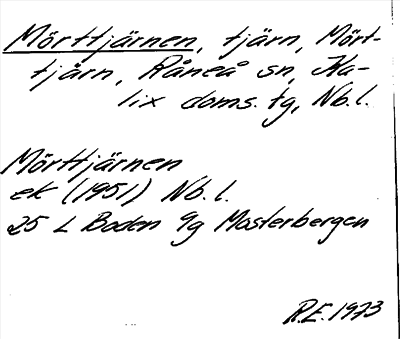 Mörttjärnen, tjärn, Mört-
tjärn, Råneå sn, Ka-
lix doms. tg, Nb.l.
Mörttjärnen
ek (1951) Nb.l.
25 L Boden 9g Mosterbergen
R.E. 1973